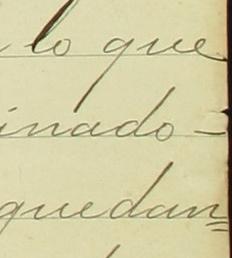 lo que
inado-
quedan=